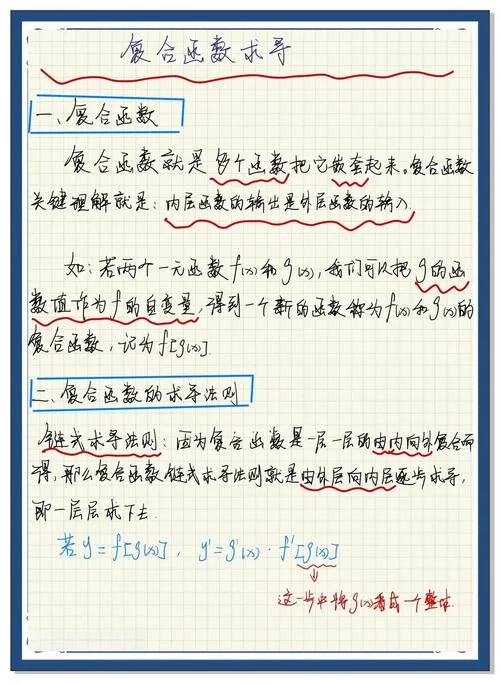 复合函数求导
一、复合函数
复合函数就是多个函数把它嵌套起来。复合函数
关键理解就是：内层函数的输出是外层函数的输入.
如：若两个一元函数f(x)和g(x)，我们可以把g的函
数值作为f的自变量，得到一个新的函数称为f(x)和g(x)的
复合函数，记为f[g(x)].
二、复合函数的求导法则
链式求导法则：因为复合函数是一层一层的由内向外复合而
得，那么复合函数链式求导法则就是由外层向内层逐步求导，
即一层层求下去.
若y=f[g(x)]，y'=g'(x)·f'[g(x)]
这一步中将g(x)看成一个整体.